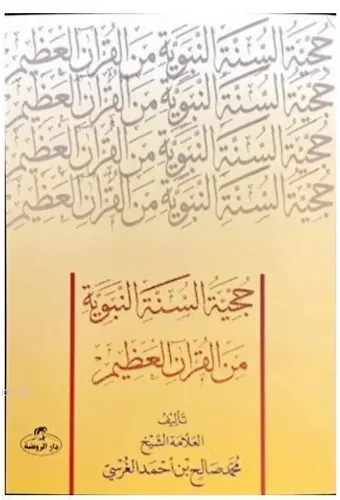 حُجِّيَّةُ السُّنَّةِ النَّبَوِيَّةِ مِنَ القُرْآنِ العَظِيمِ
حُجِّيَّةُ السُّنَّةِ النَّبَوِيَّةِ مِنَ القُرْآنِ العَظِيمِ
حُجِّيَّةُ السُّنَّةِ النَّبَوِيَّةِ مِنَ القُرْآنِ العَظِيمِ
حُجِّيَّةُ السُّنَّةِ النَّبَوِيَّةِ مِنَ القُرْآنِ العَظِيمِ
حُجِّيَّةُ السُّنَّةِ النَّبَوِيَّةِ
مِنَ القُرْآنِ العَظِيمِ
تَأْلِيف
العَلَّامَة الشَّيْخ
مُحَمَّد صَالِح بْن أَحْمَد الغُرْسِيّ
دار الروضة